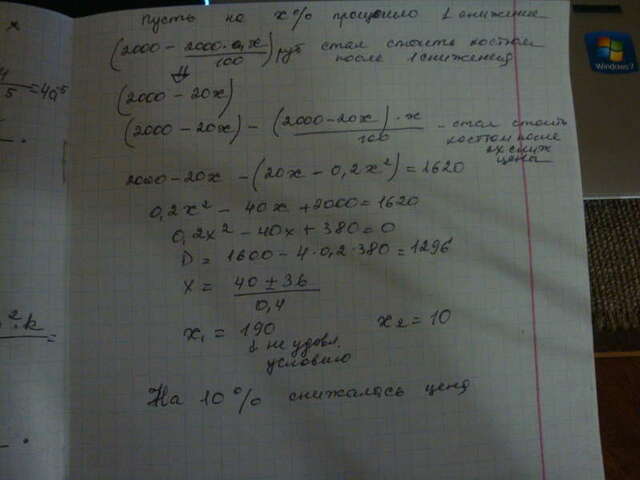 Пусть на x% прошло 1 снижение
(2000 - 2000·x/100) руб стал стоить костюм после 1 снижения
⇓
(2000 - 20x)
(2000 - 20x) - (2000 - 20x)·x/100 - стал стоить костюм после 2х сниж цены
2000 - 20x - (20x - 0,2x²) = 1620
0,2x² - 40x + 2000 = 1620
0,2x² - 40x + 380 = 0
D = 1600 - 4·0,2·380 = 1296
x = 40 ± 36 / 0,4
x₁ = 190 x₂ = 10
не удовл. условию
На 10% снижалась цена
5 = 4a⁵
².k =
Windows 7